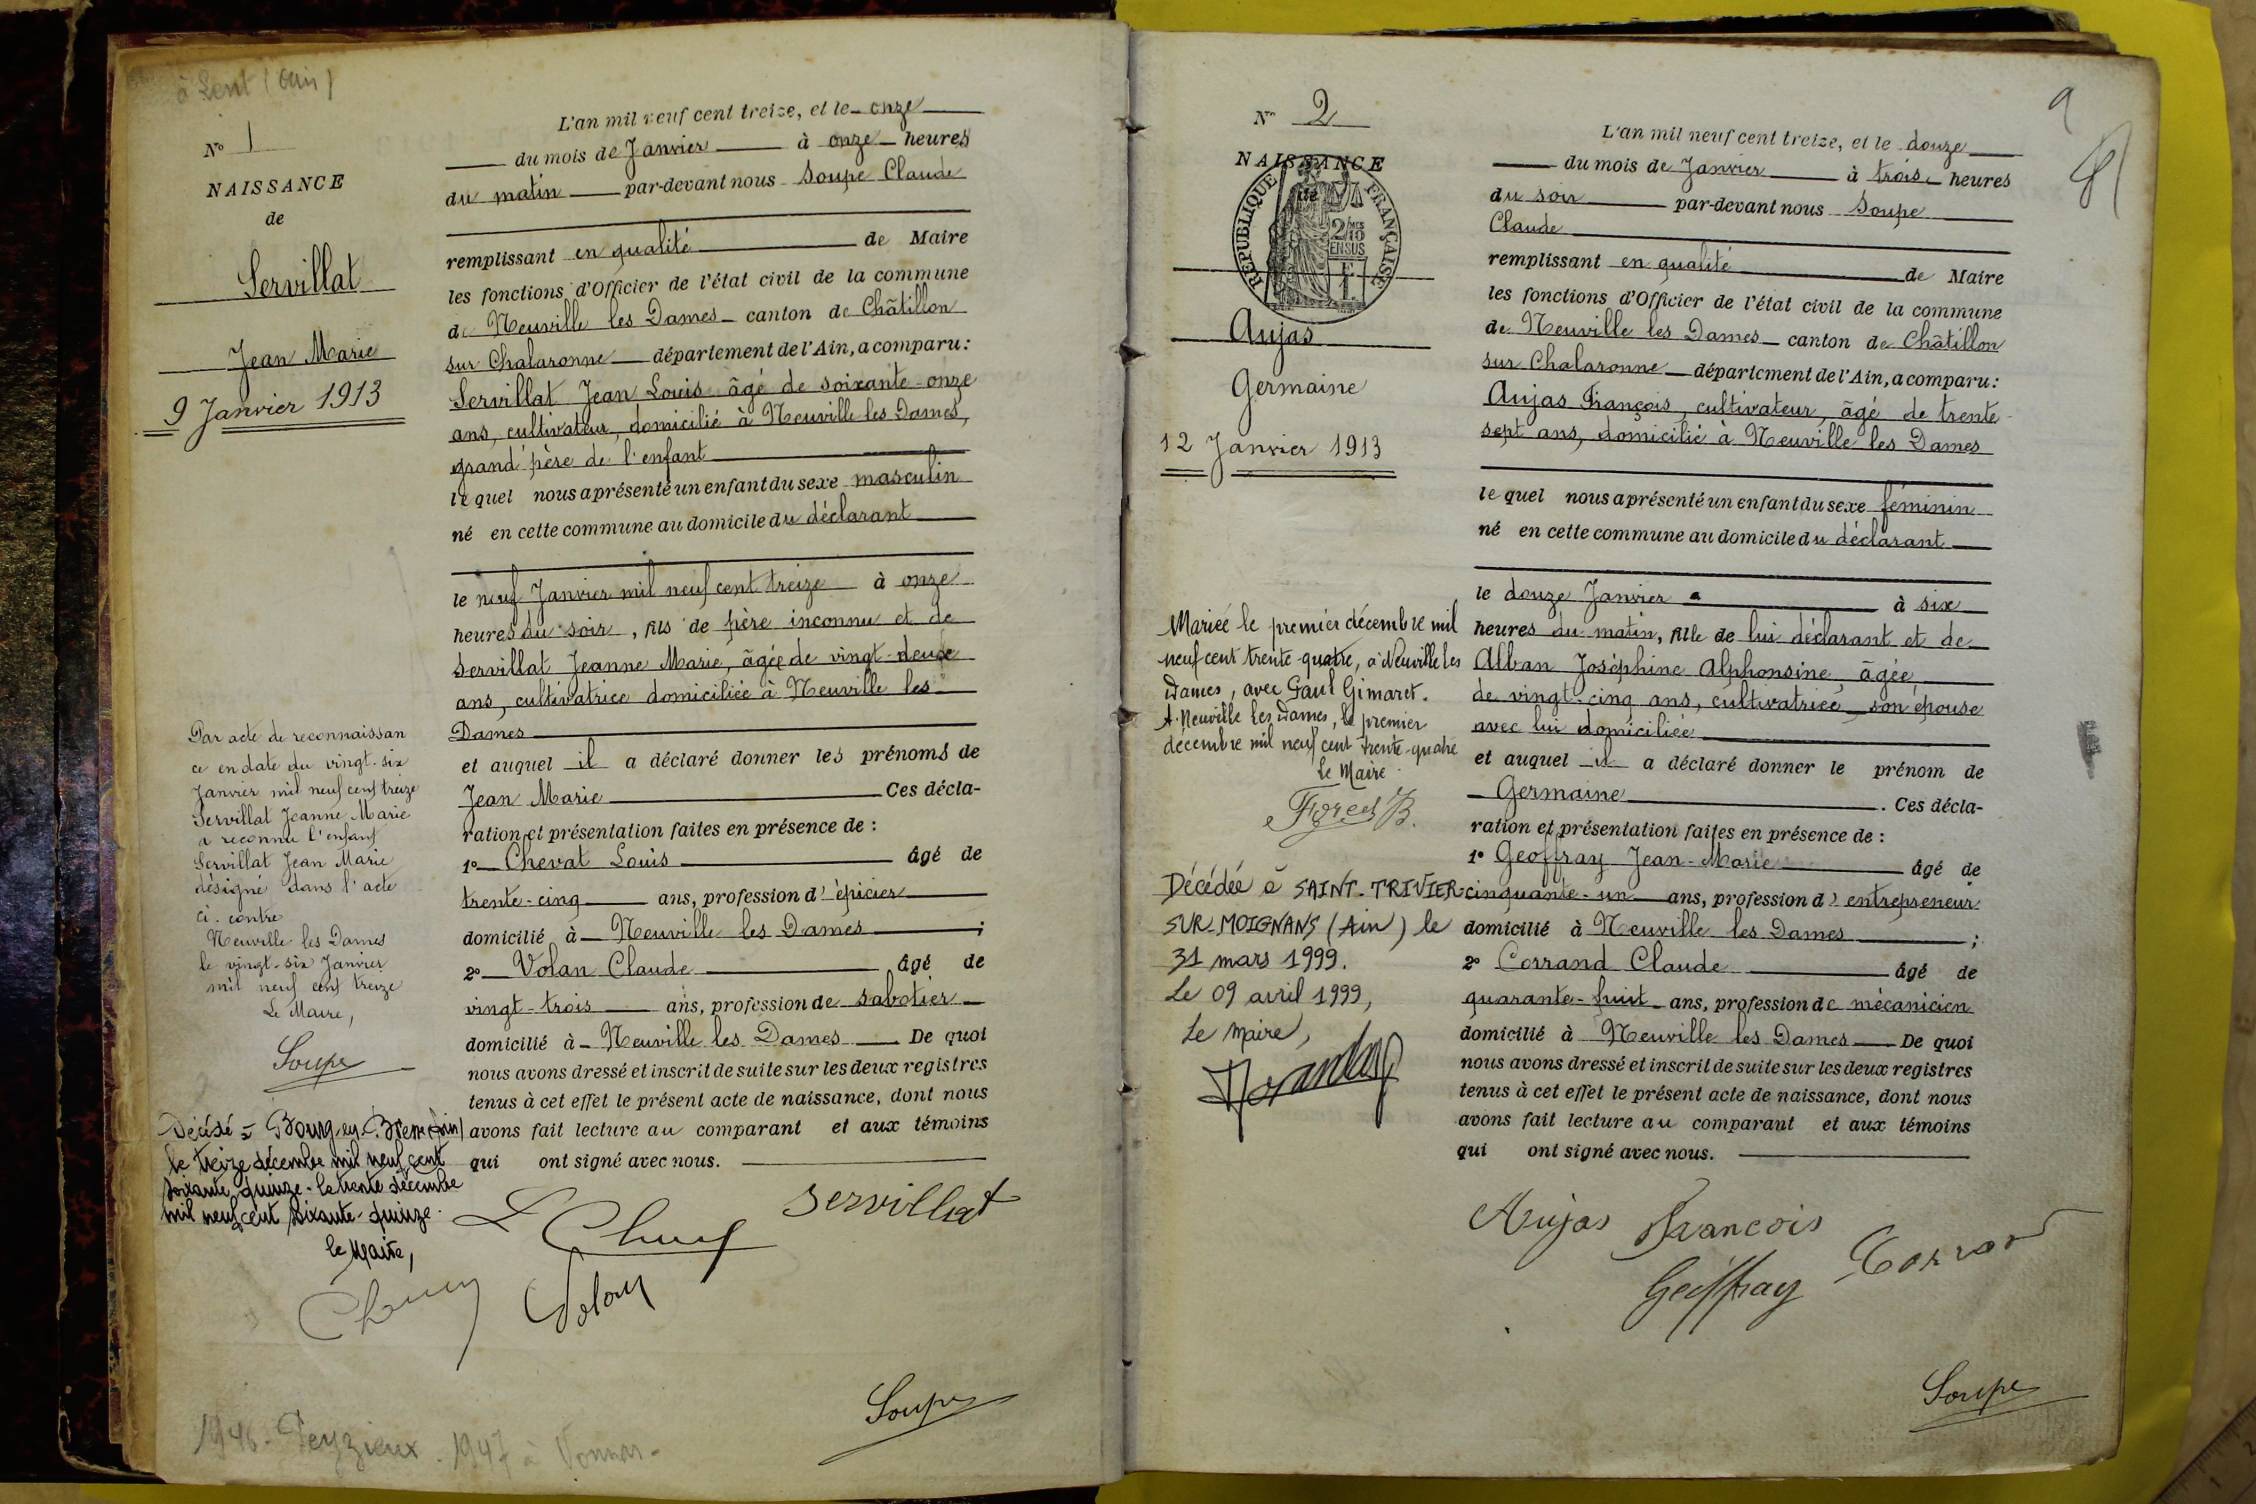 à Lent (Ain)
No 1
NAISSANCE
de
Servillat
Jean Marie
9 Janvier 1913
L'an mil neuf cent treize, et le onze
du mois de Janvier à onze heures
du matin par-devant nous Soupe Claude
remplissant en qualité de Maire
les fonctions d'Officier de l'état civil de la commune
de Neuville les Dames canton de Châtillon
sur Chalaronne département de l'Ain, a comparu:
Servillat Jean Louis âgé de soixante-onze
ans, cultivateur, domicilié à Neuville les Dames,
grand'père de l'enfant
lequel nous a présenté un enfant du sexe masculin
né en cette commune au domicile du déclarant
le neuf Janvier mil neuf cent treize à onze
heures du soir, fils de père inconnu et de
Servillat Jeanne Marie, âgée de vingt-deuxe
ans, cultivatrice domiciliée à Neuville les
Dames
et auquel il a déclaré donner les prénoms de
Jean Marie Ces décla-
ration et présentation faites en présence de :
1o Chevat Louis âgé de
trente-cinq ans, profession d'épicier
domicilié à Neuville les Dames ;
2o Volan Claude âgé de
vingt-trois ans, profession de sabotier
domicilié à Neuville les Dames De quoi
nous avons dressé et inscrit de suite sur les deux registres
tenus à cet effet le présent acte de naissance, dont nous
avons fait lecture au comparant et aux témoins
qui ont signé avec nous.
Servillat
Volan
Soupe
Par acte de reconnaissan
ce en date du vingt-six
Janvier mil neuf cent treize
Servillat Jeanne Marie
a reconnu l'enfant
Servillat Jean Marie
désigné dans l'acte
ci-contre
Neuville les Dames
le vingt-six Janvier
mil neuf cent treize
Le Maire,
Soupe
Décédé à Bourg-en-Bresse (Ain)
le treize décembre mil neuf cent
soixante quinze - le trente décembre
mil neuf cent soixante-quinze.
le Maire,
1946. Peyzieux. 1947 à Vonnas-
No 2
NAISSANCE
de
RÉPUBLIQUE FRANÇAISE
2/10
EN SUS
Aujas
Germaine
12 Janvier 1913
9
L'an mil neuf cent treize, et le douze
du mois de Janvier à trois heures
du soir par-devant nous Soupe
Claude
remplissant en qualité de Maire
les fonctions d'Officier de l'état civil de la commune
de Neuville les Dames canton de Châtillon
sur Chalaronne département de l'Ain, a comparu:
Aujas François, cultivateur, âgé de trente-
sept ans, domicilié à Neuville les Dames
lequel nous a présenté un enfant du sexe féminin
né en cette commune au domicile du déclarant
le douze Janvier à six
heures du matin, fille de lui déclarant et de
Alban Joséphine Alphonsine, âgée
de vingt-cinq ans, cultivatrice, son épouse
avec lui domiciliée
et auquel il a déclaré donner le prénom de
Germaine. Ces décla-
ration et présentation faites en présence de :
1o Geoffray Jean-Marie âgé de
cinquante-un ans, profession d'entrepreneur
domicilié à Neuville les Dames ;
2o Corrand Claude âgé de
quarante-huit ans, profession de mécanicien
domicilié à Neuville les Dames De quoi
nous avons dressé et inscrit de suite sur les deux registres
tenus à cet effet le présent acte de naissance, dont nous
avons fait lecture au comparant et aux témoins
qui ont signé avec nous.
Aujas Francois
Geoffray
Soupe
Mariée le premier décembre mil
neuf cent trente-quatre, à Neuville les
Dames, avec Paul Gimaret.
A Neuville les Dames, le premier
décembre mil neuf cent trente-quatre
Le Maire
Décédée à SAINT-TRIVIER-
SUR-MOIGNANS (Ain) le
31 mars 1999.
Le 09 avril 1999,
Le maire,